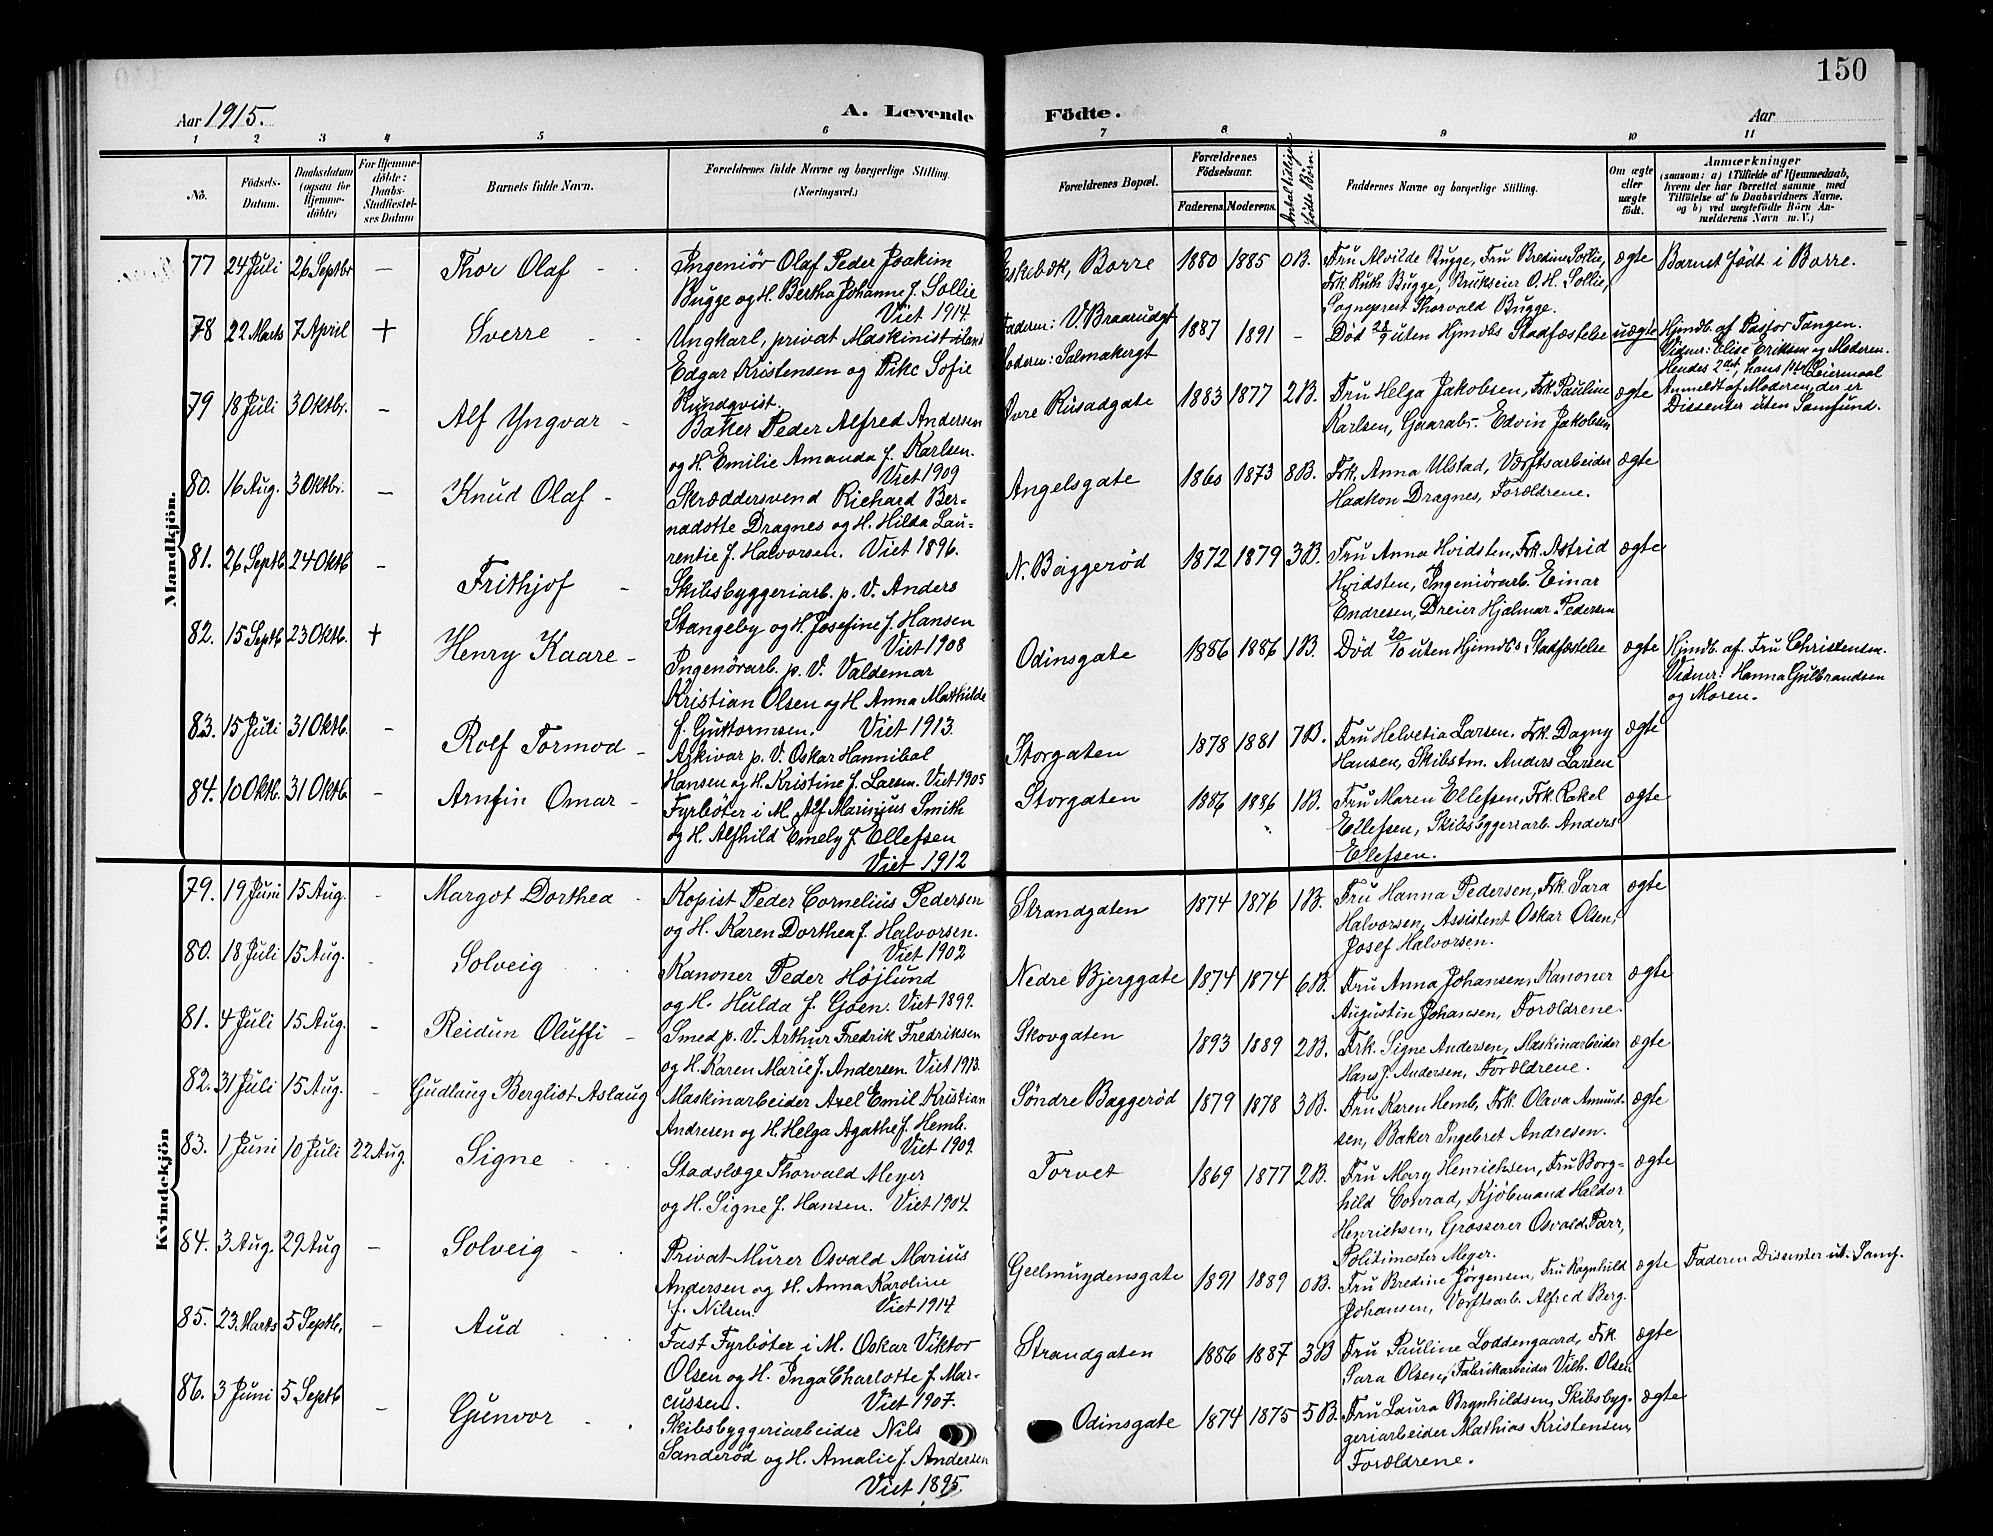 150
Aar 1915.
A. Levende Födte.
Aar
1 2 3 4 5 6 7 8 9 10 11
No.
Födsels-Datum.
Daabsdatum (ogsaa for Hjemmedöbte)
For Hjemmedöbte: Daabs-Stadfæstelses Datum
Barnets fulde Navn.
Forældrenes fulde Navne og borgerlige Stilling. (Næringsvei.)
Forældrenes Bopæl.
Forældrenes Födselsaar.
Faderens. Moderens.
Faddernes Navne og borgerlige Stilling.
Om ægte eller uægte födt.
Anmærkninger
(saasom: a) i Tilfælde af Hjemmedaab, hvem der har forrettet samme, med Tilföielse af to Daabsvidners Navne, og b) ved uægtefödte Börn Anmelderens Navn m. V.)
Mandkjön.
77 24 Juli 26 Septbr – Thor Olaf - -
Ingeniör Olaf Peder Joakim
Bugge og H. Bertha Johanne f. Sollie
Viet 1914
Borre 1880 1885 0B.
Fru Alvilde Bugge, Fru Bredine Sollie,
Frk. Ruth Bugge, Brukseier O. H. Sollie,
Sogneprest Thorvald Bugge.
ægte Barnet född i Borre.
78 22 Marts 7 April + Sverre - -
Ungkarl, privat Maskinist
Edgar Kristensen og Sofie
Rundqvist.
Faderen: V. Braarudgt
Moderen: Salmakergt
1887 1891 –
Död uten Hjmdbs Stadfæstelse uægte
Hjmdb. af Pastor Tangen.
Vidner: Elise Eriksen og Moderen.
Hendes 2det, hans 1ste Leiermaal
79 18 Juli 3 Oktbr. – Alf Yngvar -
Baker Peder Alfred Andersen
og H. Emilie Amanda f. Karlsen.
Viet 1909
Övre Rusadgate 1883 1877 2B.
Fru Helga Jakobsen, Frk. Pauline
Karlsen, Gaarabr. Edvin Jakobsen
ægte
Anmeldt af Moderen, der er
Dissenter uten Samfund.
80. 16 Aug. 3 Oktbr. – Knud Olaf -
Skræddersvend Richard Ber-
nadotte Dragnes og H. Hilda Lau-
rentie f. Halvorsen. Viet 1896.
Angelsgate 1860 1873 8B.
Frk. Anna Ulstad, Værftsarbeider
Haakon Dragnes, Forældrene.
ægte
81. 26 Septb. 24 Oktb – Frithjof -
Skibsbyggeriarb. p. V. Anders
Stangeby og H. Josefine f. Hansen
Viet 1908
N. Baggeröd 1872 1879 3B.
Fru Anna Hvidsten, Frk. Astrid
Hvidsten, Ingeniörarb. Einar
Endresen, Dreier Hjalmar Pedersen
ægte
82. 15 Septb 23 Oktb. + Henry Kaare -
Ingenörarb. p. V. Valdemar
Kristian Olsen og H. Anna Mathilde
f. Guttormsen. Viet 1913.
Odinsgate 1886 1886 1B.
Död uten Hjmdbs. Stadfæstelse ægte
Hjmdb. af Fru Christensen.
Vidner: Hanna Gulbrandsen
og Moren.
83. 15 Juli 31 Oktb. – Rolf Tormod -
Arkivar p. V. Oskar Hannibal
Hansen og H. Kristine f. Larsen. Viet 1905
Storgaten 1878 1881 7B.
Fru Helvetia Larsen, Frk. Dagny
Hansen, Skibstm. Anders Larsen
ægte
84. 10 Oktb. 31 Oktb – Arnfin Omar -
Fyrböter i M. Alf Marinius Smith
og H. Alfhild Emely f. Ellefsen
Viet 1912
Storgaten 1886 1886 1B.
Fru Maren Ellefsen, Frk. Rakel
Ellefsen, Skibsbyggeriarb. Anders
Elefsen.
ægte
Kvindekjön
79. 19 Juni 15 Aug. - Margot Dorthea -
Kopist Peder Cornelius Pedersen
og H. Karen Dorthea f. Halvorsen.
Viet 1902
Strandgaten 1874 1876 1B.
Fru Hanna Pedersen, Frk. Sara
Halvorsen, Assistent Oskar Olsen,
Josef Halvorsen.
ægte
80. 18 Juli 15 Aug. - Solveig - - -
Kanoner Peder Höjlund
og H. Hulda f. Goen. Viet 1899.
Nedre Bjerggate 1874 1874 6B.
Fru Anna Johansen, Kanoner
Augustin Johansen, Forældrene.
ægte
81. 4 Juli 15 Aug. - Reidun Oluffi -
Smed p. V. Arthur Fredrik Fredriksen
og H. Karen Marie f. Andersen. Viet 1913.
Skovgaten 1893 1889 2B.
Frk. Signe Andersen, Maskinarbeider
Hans J. Andersen, Forældrene.
ægte
82. 31 Juli 15 Aug. - Gudlaug Bergliot Aslaug
Maskinarbeider Axel Emil Kristian
Andresen og H. Helga Agathe f. Hemb.
Viet 1909.
Söndre Baggeröd 1879 1878 3B.
Fru Karen Hemb, Frk. Olava Amund-
sen, Baker Ingebret Andresen.
ægte
83. 1 Juni 10 Juli 22 Aug. Signe - - -
Stadslæge Thorvald Meyer
og H. Signe f. Hansen. Viet 1904.
Torvet 1869 1877 2B.
Fru Mary Henrichsen, Fru Borg-
hild Conrad, Kjöbmand Haldor
Henrichsen, Grosserer Osvald Parr,
Politimester Meyer.
ægte
84. 3 Aug. 29 Aug – Solveig - -
Privat Murer Osvald Marius
Andersen og H. Anna Karoline
f. Nilsen. Viet 1914
Geelmuydensgate 1891 1889 0B.
Fru Bredine Jörgensen, Fru Ragnhild
Johansen, Værftsarb. Alfred Berg.
ægte Faderen Dissenter ut. Samf.
85. 23. Marts 5 Septb. – Aud - - -
Fast Fyrböter i M. Oskar Viktor
Olsen og H. Inga Charlotte f. Mar-
cussen. Viet 1907.
Strandgaten 1886 1887 3B
Fru Pauline Loddengaard, Frk.
Sara Olsen, Fabrikarbeider Vilh. Olsen
ægte
86. 3 Juni 5 Septb – Gunvor - -
Skibsbyggeriarbeider Nils
Sanderöd og H. Amalie f. Andersen
Viet 1895.
Odinsgate 1874 1875 5B.
Fru Laura Brynhildsen, Skibsbyg-
geriarbeider Mathias Kristensen,
Forældrene.
ægte